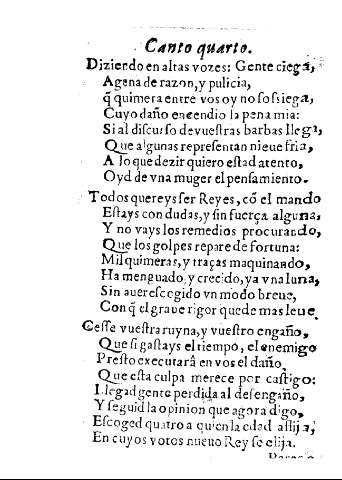 Canto quarto.
Diziendo en altas vozes: Gente ciega,
Agena de razon, y pulicia,
q̃ quimera entre vos oy no sossiega,
Cuyo daño encendio la pena mia:
Si al discurso de vuestras barbas llega,
Que algunas representan nieue fria,
A lo que dezir quiero estad atento,
Oyd de vna muger el pensamiento.
Todos quereys ser Reyes, cõ el mando
Estays con dudas, y sin fuerça alguna,
Y no vays los remedios procurando,
Que los golpes repare de fortuna:
Mil quimeras, y traças maquinando,
Ha menguado, y crecido, ya vna luna,
Sin auer escogido vn modo breue,
Con q̃ el graue rigor quede mas leue.
Cesse vuestra ruyna, y vuestro engaño,
Que si gastays el tiempo, el enemigo
Presto executará en vos el daño,
Que esta culpa merece por castigo:
Llegad gente perdida al desengaño,
Y seguid la opinion que agora digo,
Escoged quatro a quien la edad aflija,
En cuyos votos nueuo Rey se elija.